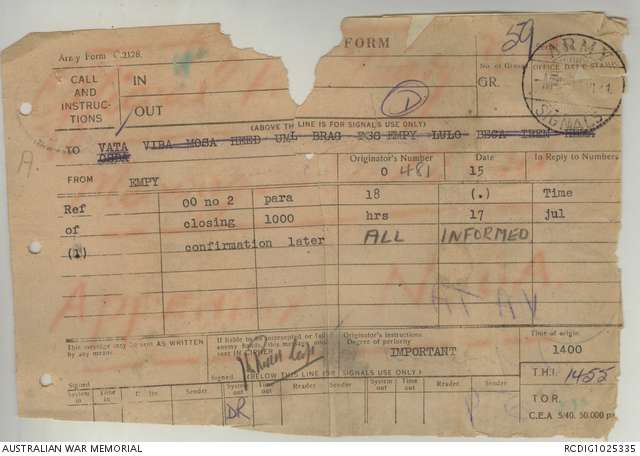 FORM
59
Army Form C.2128.
CALL AND INSTRUC-TIONS
IN
OUT
No. of Group
GR.
OFFICE DATE STAMP
ARMY
SIGNALS
D
(ABOVE TH LINE IS FOR SIGNALS USE ONLY)
TO VATA VIBA MOSA HEED UML BRAG EMPY LULO BECA IREN
A.
Originator's Number Date In Reply to Numbers
FROM EMPY 0 481 15
Ref 00 no 2 para 18 (.) Time
of closing 1000 hrs 17 jul
(1) confirmation later ALL INFORMED
This message may be sent AS WRITTEN by any means
If liable to be intercepted or fall
any hands, this message
sent IN CIPHER
Originator's instructions
Degree of priority
IMPORTANT
Time of origin
1400
Signed
Signed
(BELOW THIS LINE IS FOR SIGNALS USE ONLY)
T.H.I. 1455
System in Time in Sender System out Time out Reader Sender System out Time out Reader Sender
DR
T.O.R.
C.E.A 5/40. 50,000 ps
AUSTRALIAN WAR MEMORIAL
RCDIG1025335